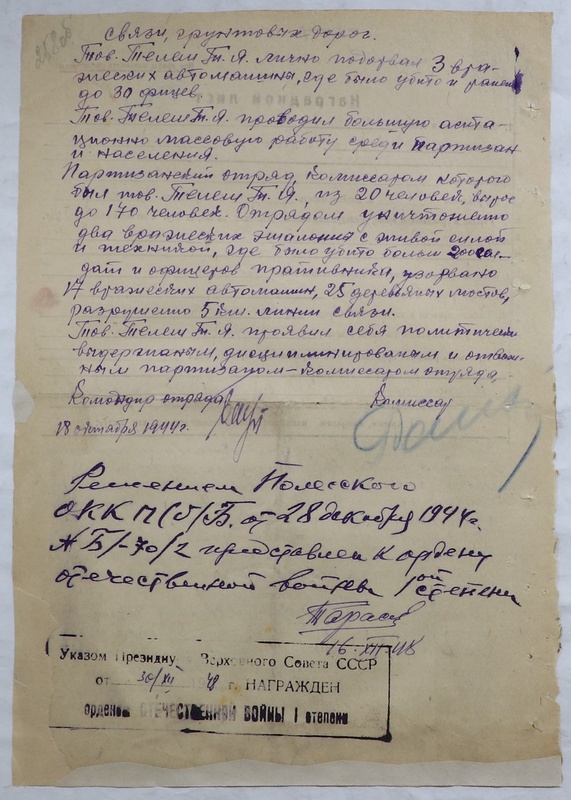 268об
связи, грунтовых дорог.
Тов. Телеш Т. Я. лично подорвал 3 вра-
жеских автомашины, где было убито и ранено
до 30 фрицев.
Тов. Телеш Т. Я. проводил большую агита-
ционно массовую работу среди партизан
и населения.
Партизанский отряд, комиссаром которого
был тов. Телеш Т. Я., из 20 человек, вырос
до 170 человек. Отрядом уничтожено
два вражеских эшалона с живой силой
и техникой, где было убито больш 200 сол-
дат и офицеров пративника, узорвано
17 вражеских автомашин, 25 деревяных мостов,
разрушено 5 км. линии связи.
Тов. Телеш Т. Я. проявил себя политически
выдержаным, дисциплинированым и отваж-
ным партизаном-комиссаром отряда.
Командир отряда Комиссар
18 октября 1944 г.
Решением Полесского
ОК КП(б)Б. от 28 декабря 1944 г.
№ Б/-70/2 представлен к ордену
отечественной войны 1ой степени
16-XII-48
Указом Президиу Верховного Совета СССР
от 30/XII 1948 г. НАГРАЖДЕН
орденом ОТЕЧЕСТВЕННОЙ ВОЙНЫ I степени